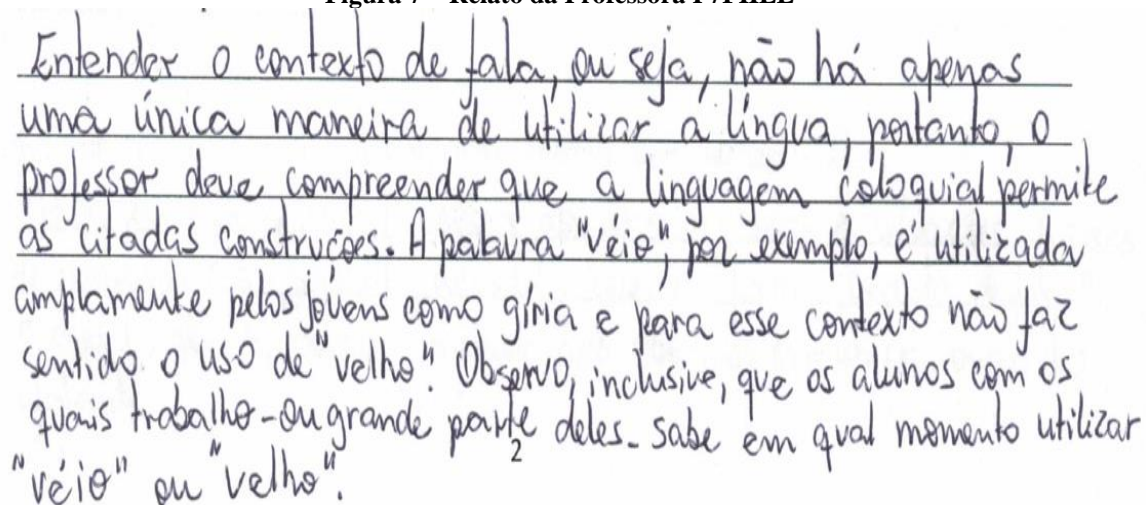 Entender o contexto de fala, ou seja, não há apenas
uma única maneira de utilizar a língua, portanto, o
professor deve compreender que a linguagem coloquial permite
as citadas construções. A palavra "véio", por exemplo, é utilizada
amplamente pelos jovens como gíria e para esse contexto não faz
sentido o uso de "velho". Observo, inclusive, que os alunos com os
quais trabalho - ou grande parte deles - sabe em qual momento utilizar
2
"véio" ou "velho".